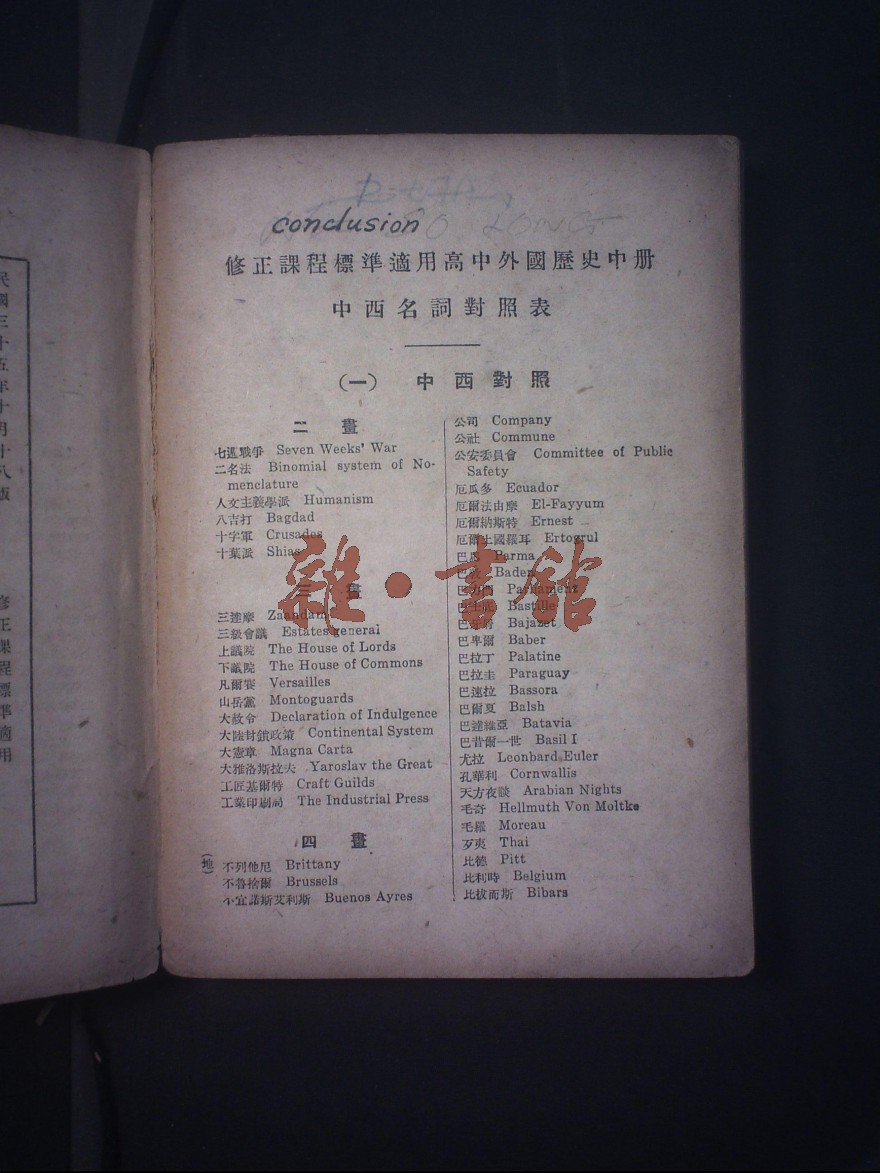 民國三十五年十月十八版
修正課程標準適用
conclusion
修正課程標準適用高中外國歷史中册
中西名詞對照表
(一) 中西對照
二畫
七週戰爭 Seven Weeks' War
二名法 Binomial system of No-
menclature
人文主義學派 Humanism
八吉打 Bagdad
十字軍 Crusades
十葉派 Shias
三畫
三達摩 Zaandam
三級會議 Estates general
上議院 The House of Lords
下議院 The House of Commons
凡爾賽 Versailles
山岳黨 Montoguards
大赦令 Declaration of Indulgence
大陸封鎖政策 Continental System
大憲章 Magna Carta
大雅洛斯拉夫 Yaroslav the Great
工匠基爾特 Craft Guilds
工業印刷祠 The Industrial Press
四畫
(地)
不列他尼 Brittany
不魯捨爾 Brussels
不宜諾斯艾利斯 Buenos Ayres
公司 Company
公社 Commune
公安委員會 Committee of Public
Safety
厄瓜多 Ecuador
厄爾法由摩 El-Fayyum
厄爾納斯特 Ernest
厄爾土國羅耳 Ertogrul
Parma
Baden
巴力門 Parliament
Bastille
Bajazet
巴卑爾 Baber
巴拉丁 Palatine
巴拉圭 Paraguay
巴速拉 Bassora
巴爾夏 Balsh
巴達維亞 Batavia
巴昔爾一世 Basil I
尤拉 Leonbard Euler
孔華利 Cornwallis
天方夜談 Arabian Nights
毛奇 Hellmuth Von Moltke
毛羅 Moreau
歹夷 Thai
比德 Pitt
比利時 Belgium
比拔而斯 Bibars
雜·書館